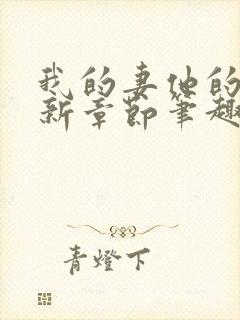 我的妻他的
新章節筆趣
青燈下